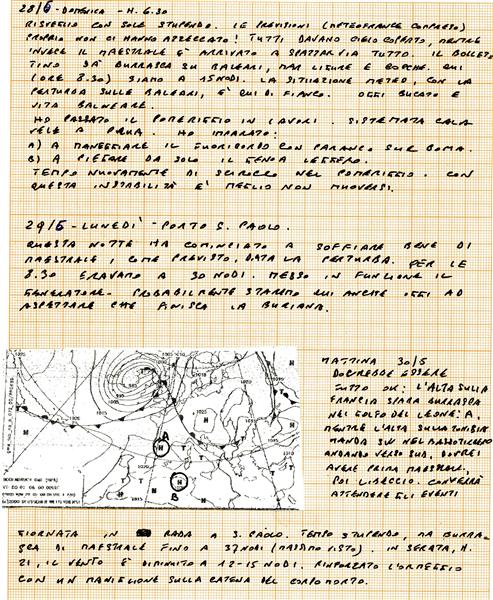 28/5 - DOMENICA - H. 6.30
RISVEGLIO CON SOLE STUPENDO. LE PREVISIONI (METEOFRANCE COMPRESO)
PROPRIO NON CI HANNO AZZECCATO! TUTTI DAVANO CIELO COPERTO, MENTRE
INVECE IL MAESTRALE È ARRIVATO A SPAZZAR VIA TUTTO. IL BOLLET-
TINO DÀ BURRASCA SU BALEARI, MAR LIGURE E BOCCHE. QUI
(ORE 8.30) SIAMO A 15 NODI. LA SITUAZIONE METEO, CON LA
PERTURBA SULLE BALEARI, È QUI DI FIANCO. OGGI BUCATO E
VITA BALNEARE.
HO PASSATO IL POMERIGGIO IN LAVORI. SISTEMATA CALA
VELE A PRUA. HO IMPARATO:
A) A MANEGGIARE IL FUORIBORDO CON PARANCO SUL BOMA.
B) A PIEGARE DA SOLO IL GENOA LEGGERO.
TEMPO NUOVAMENTE DI SCIROCCO NEL POMERIGGIO. CON
QUESTA INSTABILITÀ È MEGLIO NON MUOVERSI.
29/5 - LUNEDÌ - PORTO S. PAOLO.
QUESTA NOTTE HA COMINCIATO A SOFFIARE BENE DI
MAESTRALE, COME PREVISTO, DATA LA PERTURBA. PER LE
8.30 ERAVAMO A 30 NODI. MESSO IN FUNZIONE IL
GENERATORE. PROBABILMENTE STAREMO QUI ANCHE OGGI AD
ASPETTARE CHE FINISCA LA BURIANA.
MATTINA 30/5
DOVREBBE ESSERE
TUTTO OK: L'ALTA SULLA
FRANCIA SPARA BURRASCA
NEL GOLFO DEL LEONE: A,
MENTRE L'ALTA SULLA TUNISIA
MANDA SW NEL BASSO TIRRENO
ANDANDO VERSO SUD, DOVREI
AVERE PRIMA MAESTRALE,
POI LIBECCIO. CONVERRÀ
ATTENDERE GLI EVENTI
A
B
GIORNATA IN RADA A S. PAOLO. TEMPO STUPENDO, MA BURRA-
SCA DI MAESTRALE FINO A 37 NODI (MASSIMO VISTO). IN SERATA, H.
21, IL VENTO È DIMINUITO A 12-15 NODI. RINFORZATO L'ORMEGGIO
CON UN MANIGLIONE SULLA CATENA DEL CORPO MORTO.